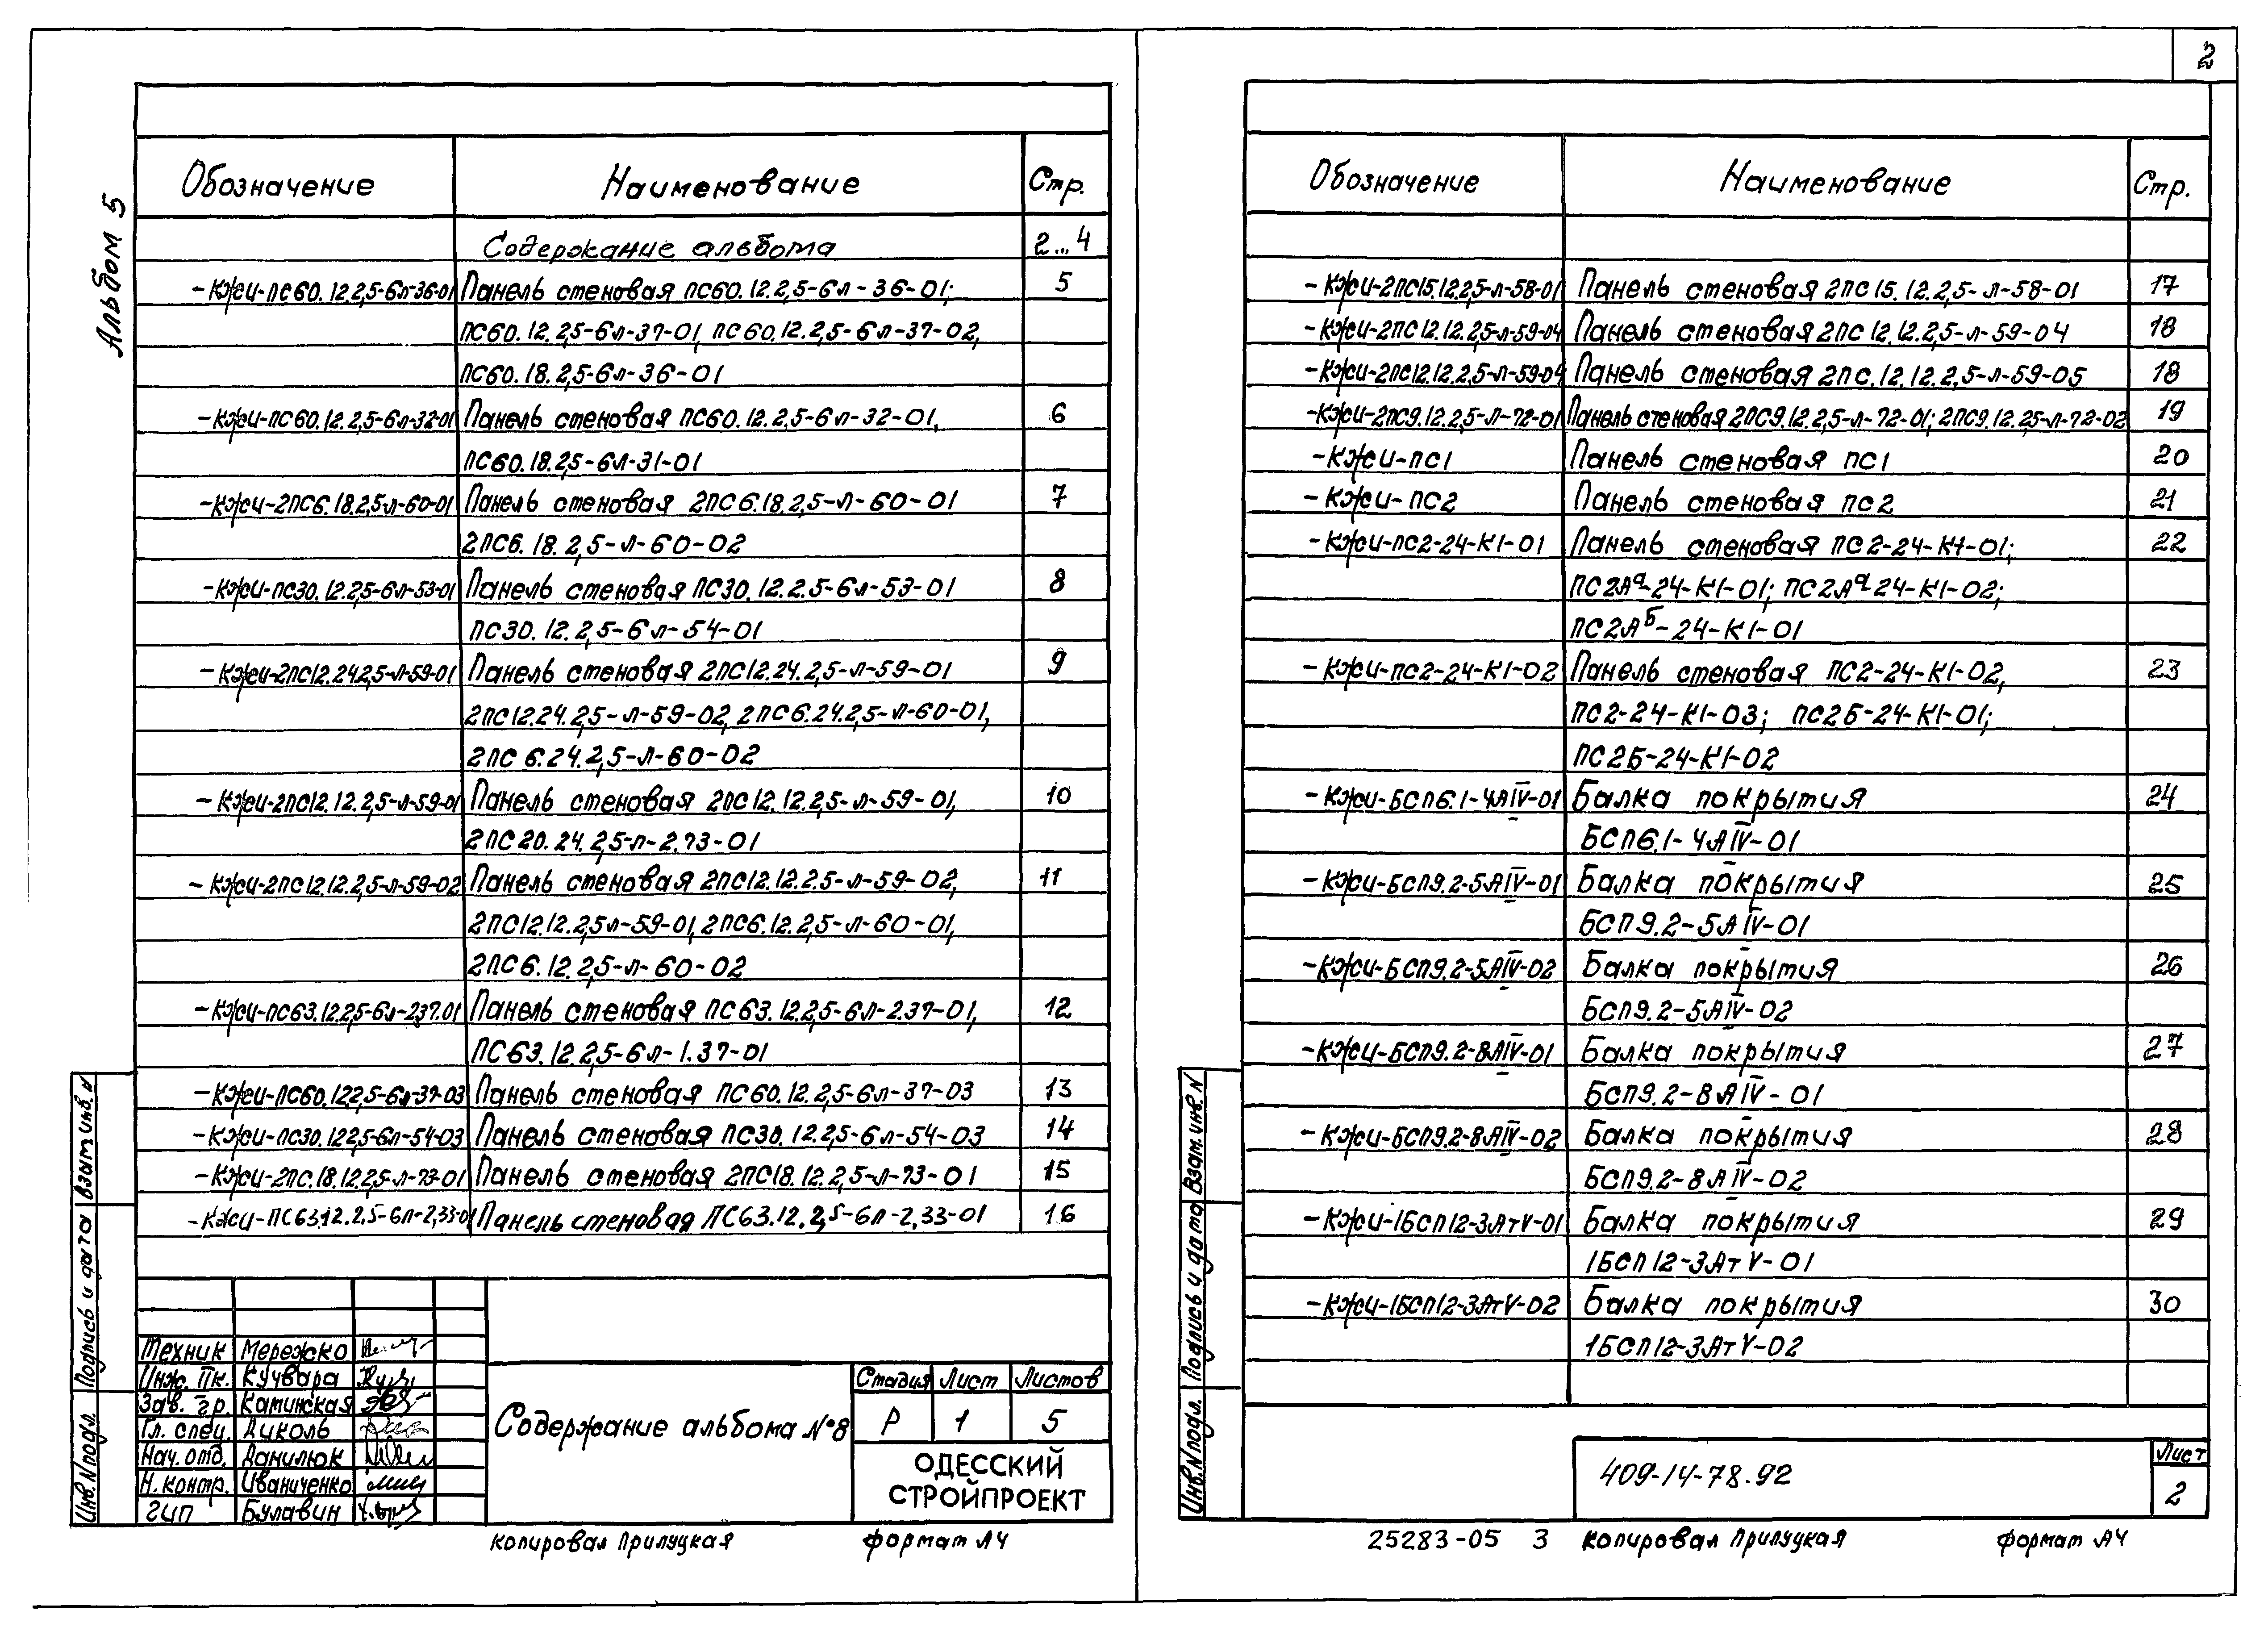 2
Альбом 5
Обозначение Наименование Стр.
Содержание альбома 2...4
-КЖИ-ПС60.12.2,5-6л-36-01 Панель стеновая ПС60.12.2,5-6л-36-01; 5
ПС60.12.2,5-6л-37-01, ПС60.12.2,5-6л-37-02,
ПС60.18.2,5-6л-36-01
-КЖИ-ПС60.12.2,5-6л-32-01 Панель стеновая ПС60.12.2,5-6л-32-01, 6
ПС60.18.2,5-6л-31-01
-КЖИ-2ПС6.18.2,5-л-60-01 Панель стеновая 2ПС6.18.2,5-л-60-01 7
2ПС6.18.2,5-л-60-02
-КЖИ-ПС30.12.2,5-6л-53-01 Панель стеновая ПС30.12.2.5-6л-53-01 8
ПС30.12.2,5-6л-54-01
-КЖИ-2ПС12.24.2,5-л-59-01 Панель стеновая 2ПС12.24.2,5-л-59-01 9
2ПС12.24.2,5-л-59-02, 2ПС6.24.2,5-л-60-01,
2ПС6.24.2,5-л-60-02
-КЖИ-2ПС12.12.2,5-л-59-01 Панель стеновая 2ПС12.12.2,5-л-59-01, 10
2ПС20.24.2,5-л-2.73-01
-КЖИ-2ПС12.12.2,5-л-59-02 Панель стеновая 2ПС12.12.2.5-л-59-02, 11
2ПС12.12.2,5л-59-01, 2ПС6.12.2,5-л-60-01,
2ПС6.12.2,5-л-60-02
-КЖИ-ПС63.12.2,5-6л-2,37.01 Панель стеновая ПС63.12.2,5-6л-2.37-01, 12
ПС63.12.2,5-6л-1.37-01
-КЖИ-ПС60.122,5-6л-37-03 Панель стеновая ПС60.12.2,5-6л-37-03 13
-КЖИ-ПС30.122,5-6л-54-03 Панель стеновая ПС30.12.2,5-6л-54-03 14
-КЖИ-2ПС.18.12.2,5-л-73-01 Панель стеновая 2ПС18.12.2,5-л-73-01 15
-КЖИ-ПС63.12.2,5-6л-2,33-01 Панель стеновая ПС63.12.2,5-6л-2,33-01 16
Техник Мережко
Инж. IIк. Кучвара
Зав. гр. Каминская
Гл. спец. Диколь
Нач. отд. Данилюк
Н. контр. Иваниченко
ГИП Булавин
Содержание альбома №8
Стадия Лист Листов
Р 1 5
ОДЕССКИЙ
СТРОЙПРОЕКТ
Инв.N подл. Подпись и дата Взам.инв. N
копировал Прилуцкая формат А4
Обозначение Наименование Стр.
-КЖИ-2ПС15.12.2,5-л-58-01 Панель стеновая 2ПС15.12.2,5-л-58-01 17
-КЖИ-2ПС12.12.2,5-л-59-04 Панель стеновая 2ПС12.12.2,5-л-59-04 18
-КЖИ-2ПС12.12.2,5-л-59-04 Панель стеновая 2ПС.12.12.2,5-л-59-05 18
-КЖИ-2ПС9.12.2,5-л-72-01 Панель стеновая 2ПС9.12.2,5-л-72-01; 2ПС9.12.2,5-л-72-02 19
-КЖИ-ПС1 Панель стеновая ПС1 20
-КЖИ-ПС2 Панель стеновая ПС2 21
-КЖИ-ПС2-24-К1-01 Панель стеновая ПС2-24-К1-01; 22
ПС2Аа-24-К1-01; ПС2Аа-24-К1-02;
ПС2Аб-24-К1-01
-КЖИ-ПС2-24-К1-02 Панель стеновая ПС2-24-К1-02, 23
ПС2-24-К1-03; ПС2Б-24-К1-01;
ПС2Б-24-К1-02
-КЖИ-БСП6.1-4АIV-01 Балка покрытия 24
БСП6.1-4АIV-01
-КЖИ-БСП9.2-5АIV-01 Балка покрытия 25
БСП9.2-5АIV-01
-КЖИ-БСП9.2-5АIV-02 Балка покрытия 26
БСП9.2-5АIV-02
-КЖИ-БСП9.2-8АIV-01 Балка покрытия 27
БСП9.2-8АIV-01
-КЖИ-БСП9.2-8АIV-02 Балка покрытия 28
БСП9.2-8АIV-02
-КЖИ-1БСП12-3АтV-01 Балка покрытия 29
1БСП12-3АтV-01
-КЖИ-1БСП12-3АтV-02 Балка покрытия 30
1БСП12-3АтV-02
409-14-78.92
Лист
2
Инв.N подл. Подпись и дата Взам.инв. N
25283-05 3 копировал Прилуцкая формат А4